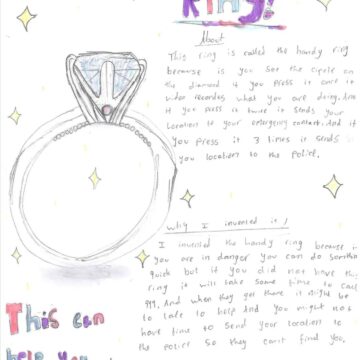 RING!
About
This ring is called the handy ring
because is you see the circle on
the diamond if you press it once it
video recordes what you are doing. And
if you press it twice it sends your
location to your emergency contact. And if
you press it 3 times it sends
you location to the police.
Why I invented it /
I invented the handy ring because if
you are in danger you can do somthing
quick but if you did not have this
ring it will take some time to call
999. And when they get there it might be
to late to help And you might not
have time to send your location to
the police so they cant find you.
This can
help you